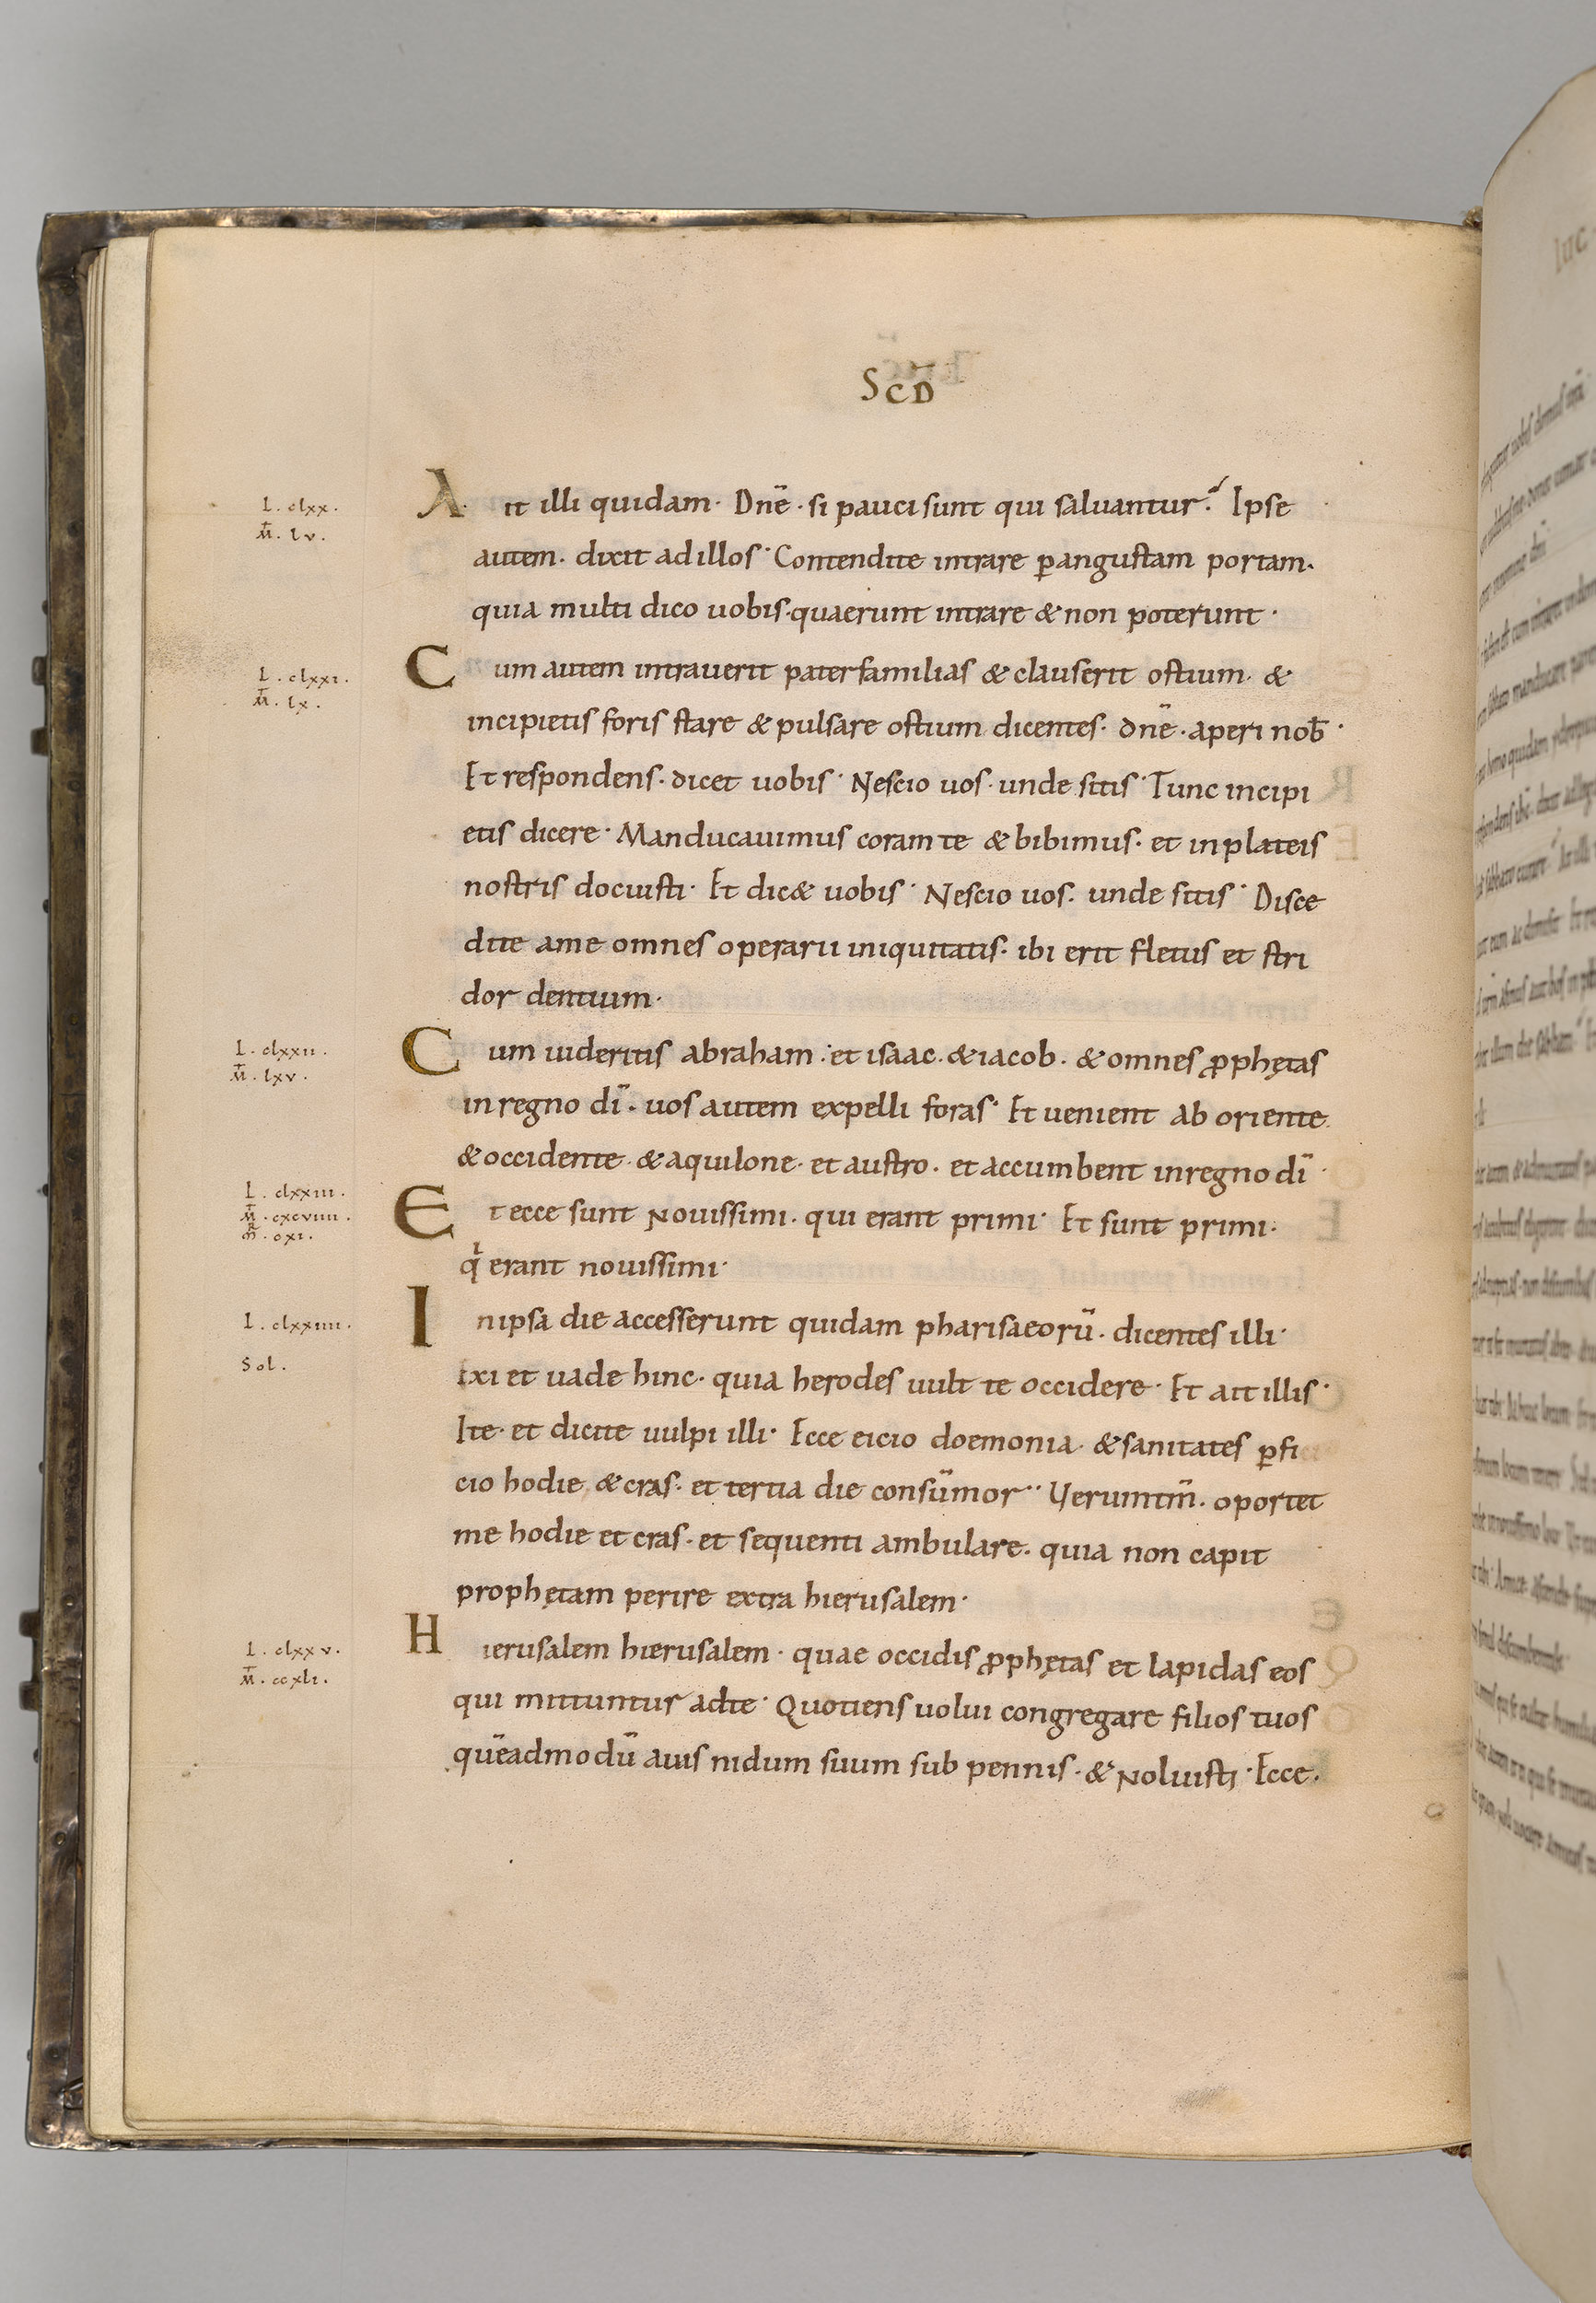 SCD̄
L . clxx .
M̄ . lv .
Ait illi quidam · Dn̄e · si pauci sunt qui saluantur? Ipse
autem · dixit ad illos · Contendite intrare ꝑ angustam portam ·
quia multi dico uobis · quaerunt intrare & non poterunt ·
L . clxxi .
M̄ . lx .
Cum autem intrauerit pater familias & clauserit ostium · &
incipietis foris stare & pulsare ostium dicentes · dn̄e · aperi nob̄ ·
Et respondens · dicet uobis · Nescio uos · unde sitis · Tunc incipi
etis dicere · Manducauimus coram te & bibimus · et in plateis
nostris docuisti · Et dic& uobis · Nescio uos · unde sitis · Disce
dite a me omnes operarii iniquitatis · ibi erit fletus et stri
dor dentium ·
L . clxxii .
M̄ . lxv .
Cum uideritis abraham · et isaac · & iacob · & omnes ꝓphętas
in regno dī · uos autem expelli foras · Et uenient ab oriente
& occidente · & aquilone · et austro · et accumbent in regno dī ·
L . clxxiii .
M̄ . cxcviiii .
cxi .
Et ecce sunt nouissimi · qui erant primi · Et sunt primi ·
qͥ erant nouissimi ·
L . clxxiiii .
Sol .
In ipsa die accesserunt quidam pharisaeorū · dicentes illi ·
Exi et uade hinc · quia herodes uult te occidere · Et ait illis ·
Ite · et dicite uulpi illi · Ecce eicio doemonia · & sanitates ꝑfi
cio hodie & cras · et tertia die consūmor ·· Ueruntm̄ · oportet
me hodie et cras · et sequenti ambulare · quia non capit
prophętam perire extra hierusalem ·
L . clxxv .
M̄ . ccxli .
Hierusalem hierusalem · quae occidis ꝓphętas et lapidas eos
qui mittuntur ad te · Quotiens uolui congregare filios tuos
quēadmodū auis nidum suum sub pennis · & noluisti · Ecce ·